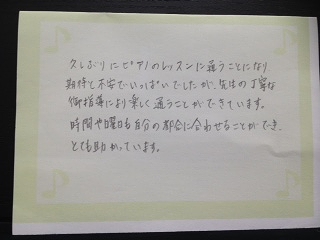 久しぶりにピアノのレッスンに通うことになり
期待と不安でいっぱいでしたが、先生の丁寧な
御指導により楽しく通うことができています。
時間や曜日も自分の都合に合わせることができ、
とても助かっています。